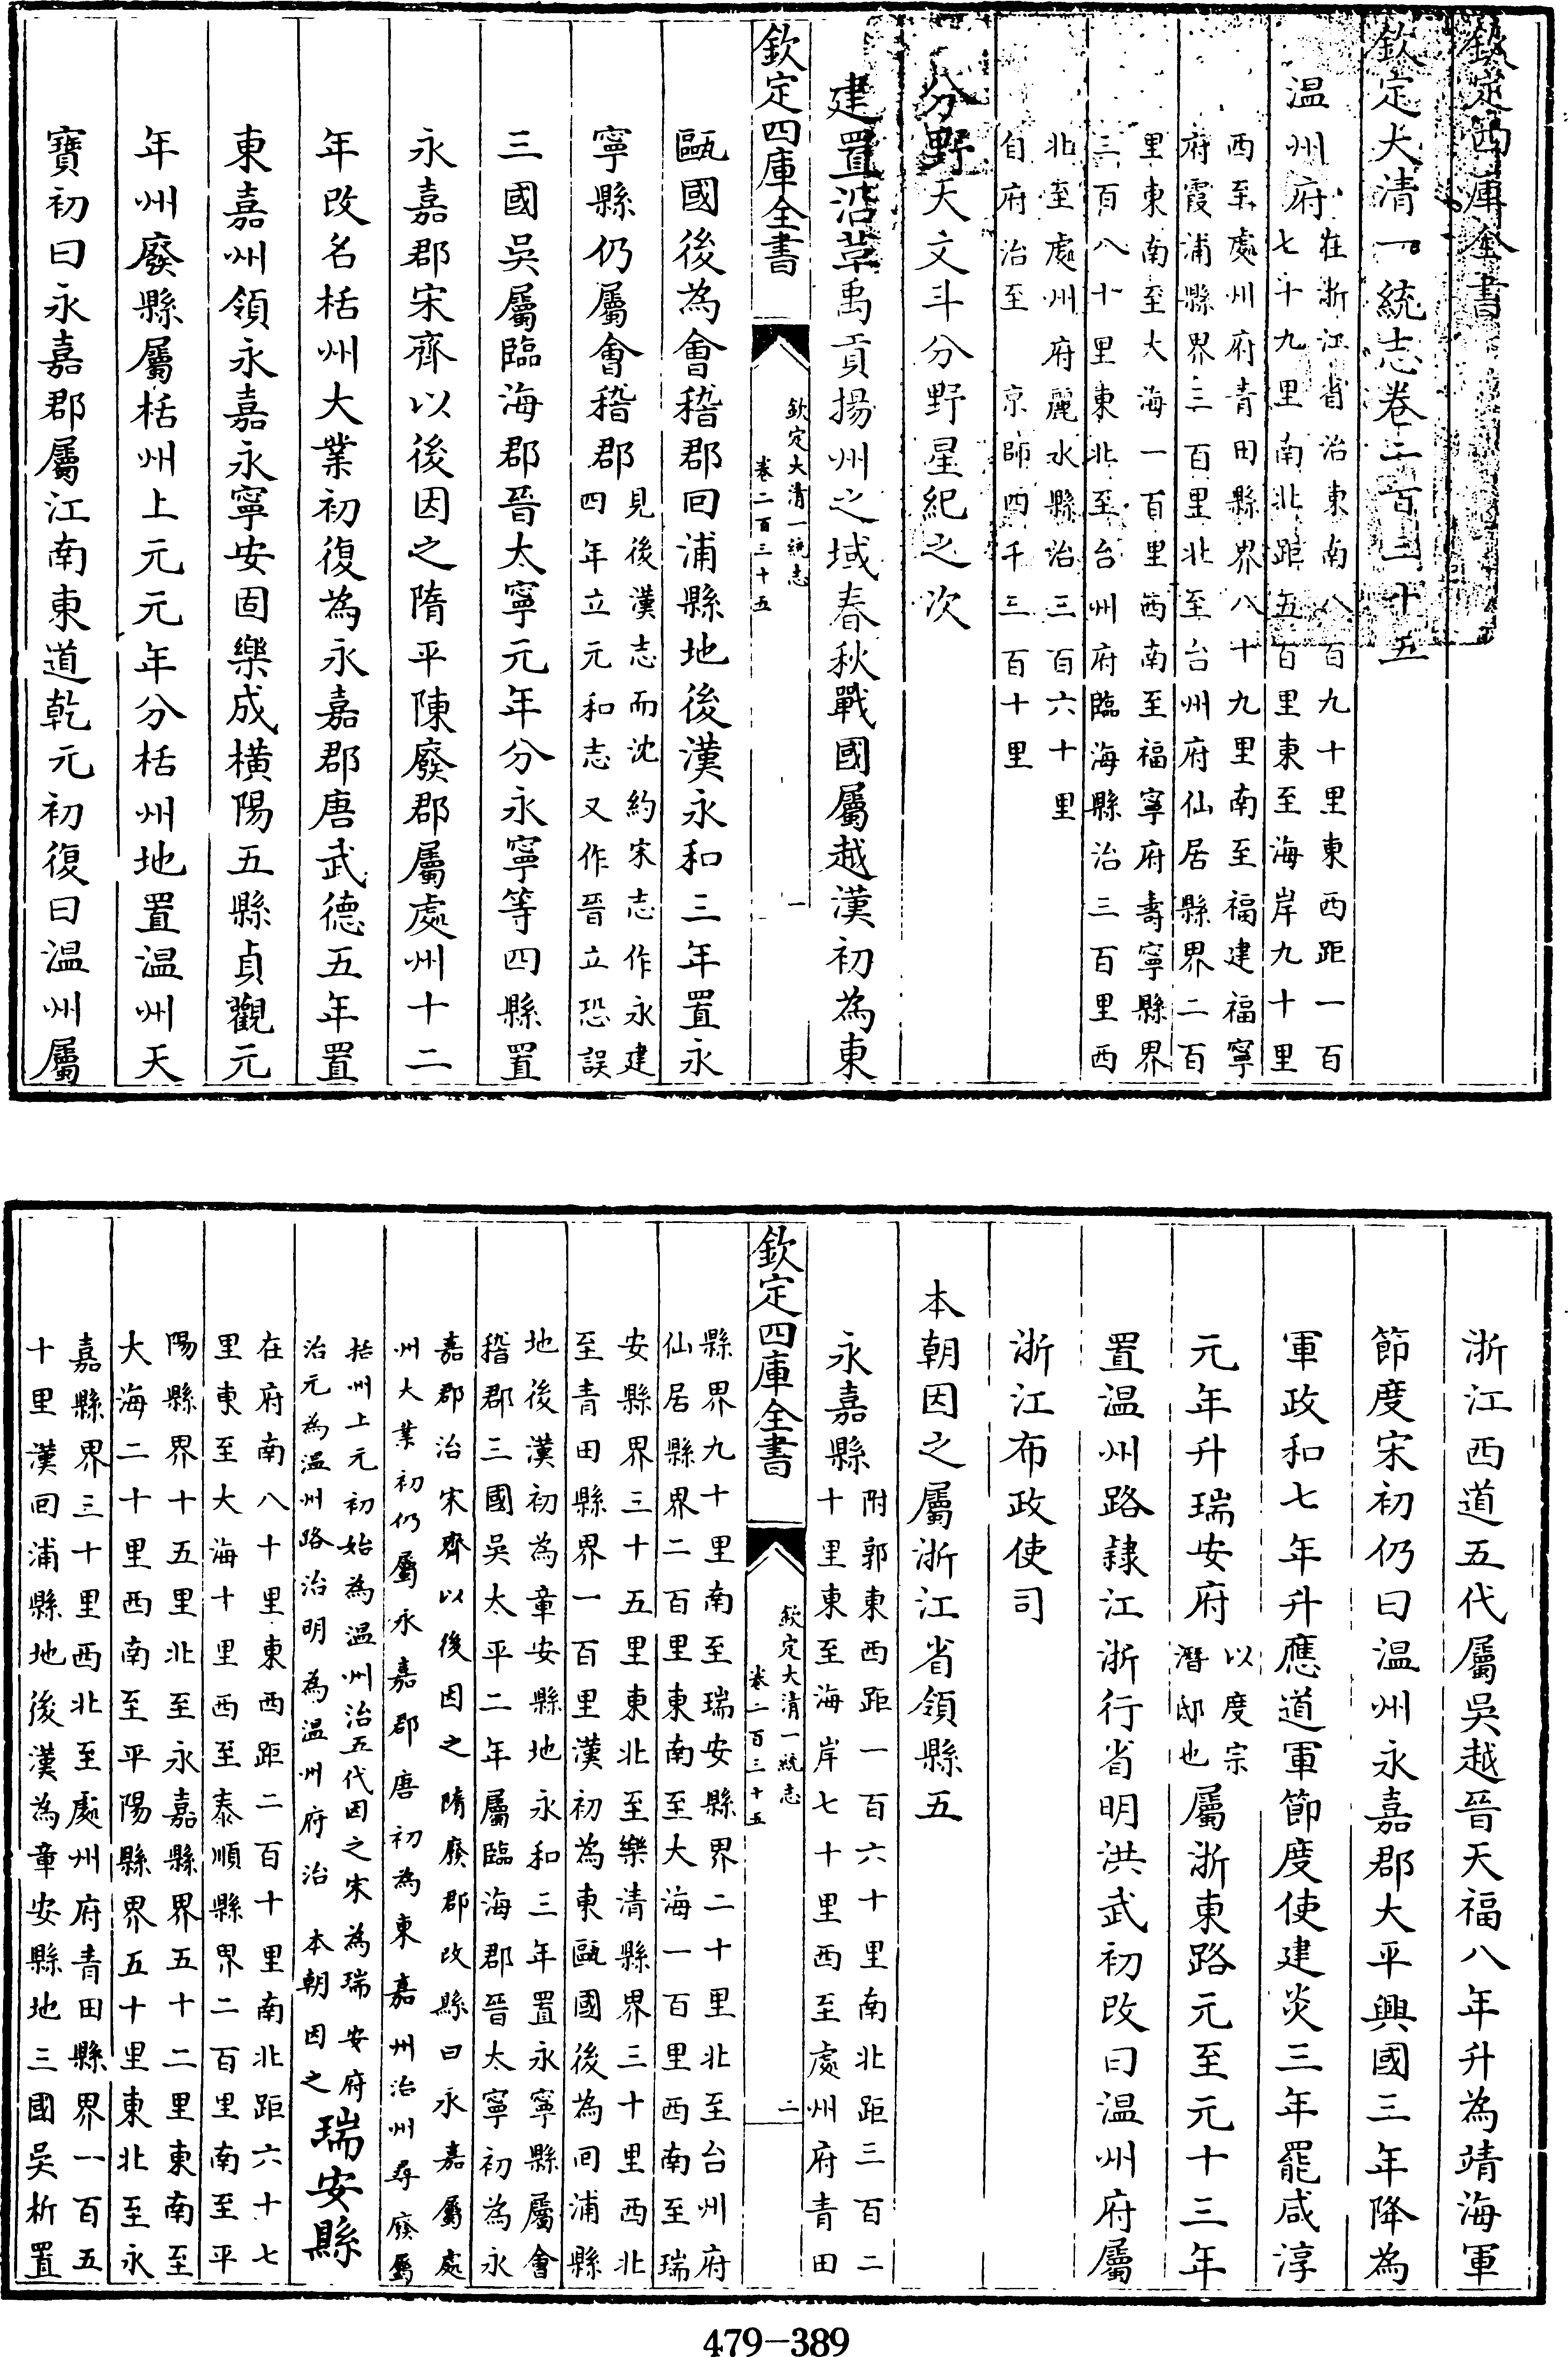 欽定四庫全書
欽定大清一統志卷二百三十五
温州府在浙江省治東南八百九十里東西距一百
七十九里南北距五百里東至海岸九十里
西至處州府青田縣界八十九里南至福建福寧
府霞浦縣界三百里北至台州府仙居縣界二百
里東南至大海一百里西南至福寧府壽寧縣界
三百八十里東北至台州府臨海縣治三百里西
北至處州府麗水縣治三百六十里
自府治至 京師四千三百十里
分野天文斗分野星紀之次
建置沿革禹貢揚州之域春秋戰國屬越漢初為東
欽定四庫全書
欽定大清一統志
卷二百三十五
一
甌國後為會稽郡回浦縣地後漢永和三年置永
寧縣仍屬會稽郡見後漢志而沈約宋志作永建
四年立元和志又作晉立恐誤
三國吳屬臨海郡晉太寧元年分永寧等四縣置
永嘉郡宋齊以後因之隋平陳廢郡屬處州十二
年改名栝州大業初復為永嘉郡唐武德五年置
東嘉州領永嘉永寧安固樂成橫陽五縣貞觀元
年州廢縣屬栝州上元元年分栝州地置温州天
寶初曰永嘉郡屬江南東道乾元初復曰温州屬
浙江西道五代屬吳越晉天福八年升為靖海軍
節度宋初仍曰温州永嘉郡大平興國三年降為
軍政和七年升應道軍節度使建炎三年罷咸淳
元年升瑞安府以度宗
潛邸也屬浙東路元至元十三年
置温州路隸江浙行省明洪武初改曰温州府屬
浙江布政使司
本朝因之屬浙江省領縣五
永嘉縣附郭東西距一百六十里南北距三百二
十里東至海岸七十里西至處州府青田
欽定四庫全書
欽定大清一統志
卷二百三十五
二
縣界九十里南至瑞安縣界二十里北至台州府
仙居縣界二百里東南至大海一百里西南至瑞
安縣界三十五里東北至樂清縣界三十里西北
至青田縣界一百里漢初為東甌國後為回浦縣
地後漢初為章安縣地永和三年置永寧縣屬會
稽郡三國吳太平二年屬臨海郡晉太寧初為永
嘉郡治宋齊以後因之隋廢郡改縣曰永嘉屬處
州大業初仍屬永嘉郡唐初為東嘉州治州尋廢屬
栝州上元初始為温州治五代因之宋為瑞安府
治元為温州路治明為温州府治 本朝因之瑞安縣
在府南八十里東西距二百十里南北距六十七
里東至大海十里西至泰順縣界二百里南至平
陽縣界十五里北至永嘉縣界五十二里東南至
大海二十里西南至平陽縣界五十里東北至永
嘉縣界三十里西北至處州府青田縣界一百五
十里漢回浦縣地後漢為章安縣地三國吳析置
479-389